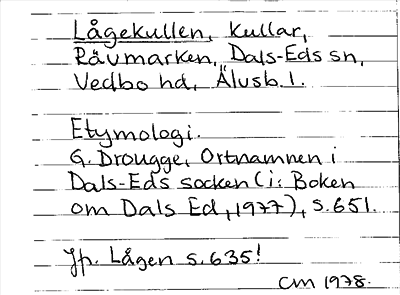 Lågekullen, kullar,
Rävmarken, Dals-Eds sn,
Vedbo hd, Älvsb. l.
Etymologi.
G. Drougge, Ortnamnen i
Dals-Eds socken (i: Boken
om Dals Ed, 1977), s. 651.
Jfr. Lågen s. 635!
CM 1978.